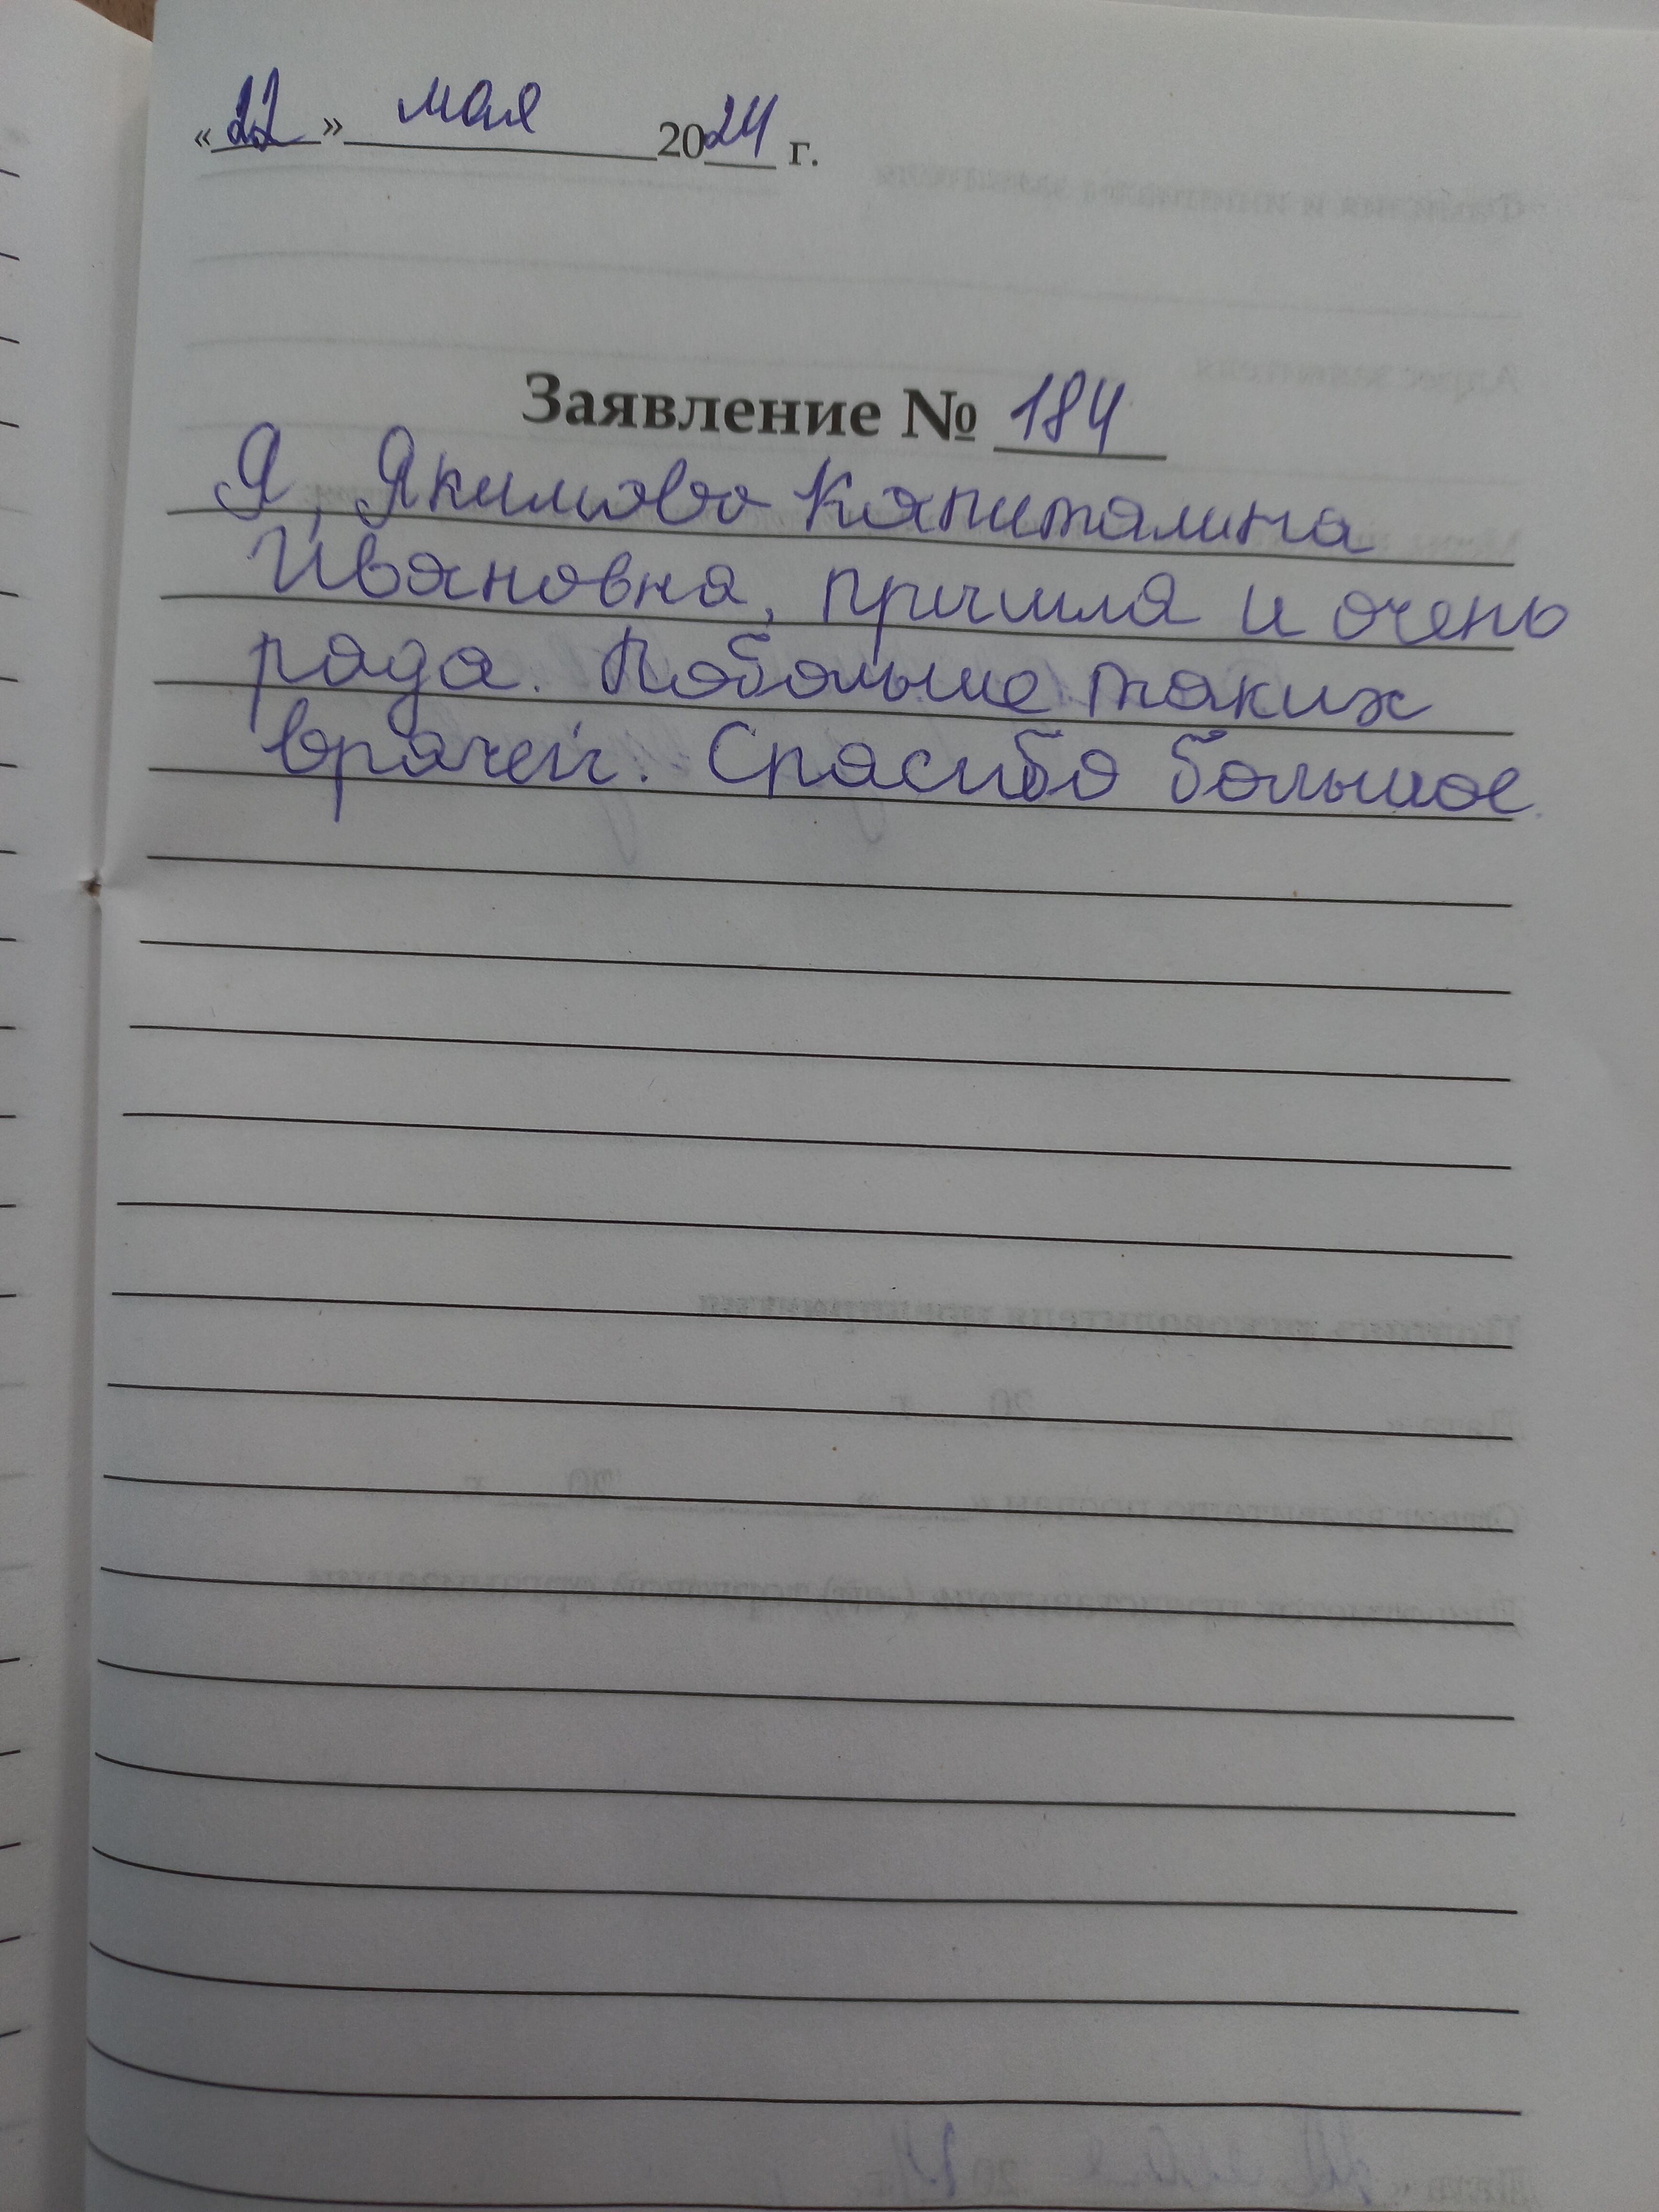 «22» мая 2024 г.
Заявление № 184
Я, Якимова Капиталина
Ивановна, пришла и очень
рада. Побольше таких
врачей. Спасибо большое.